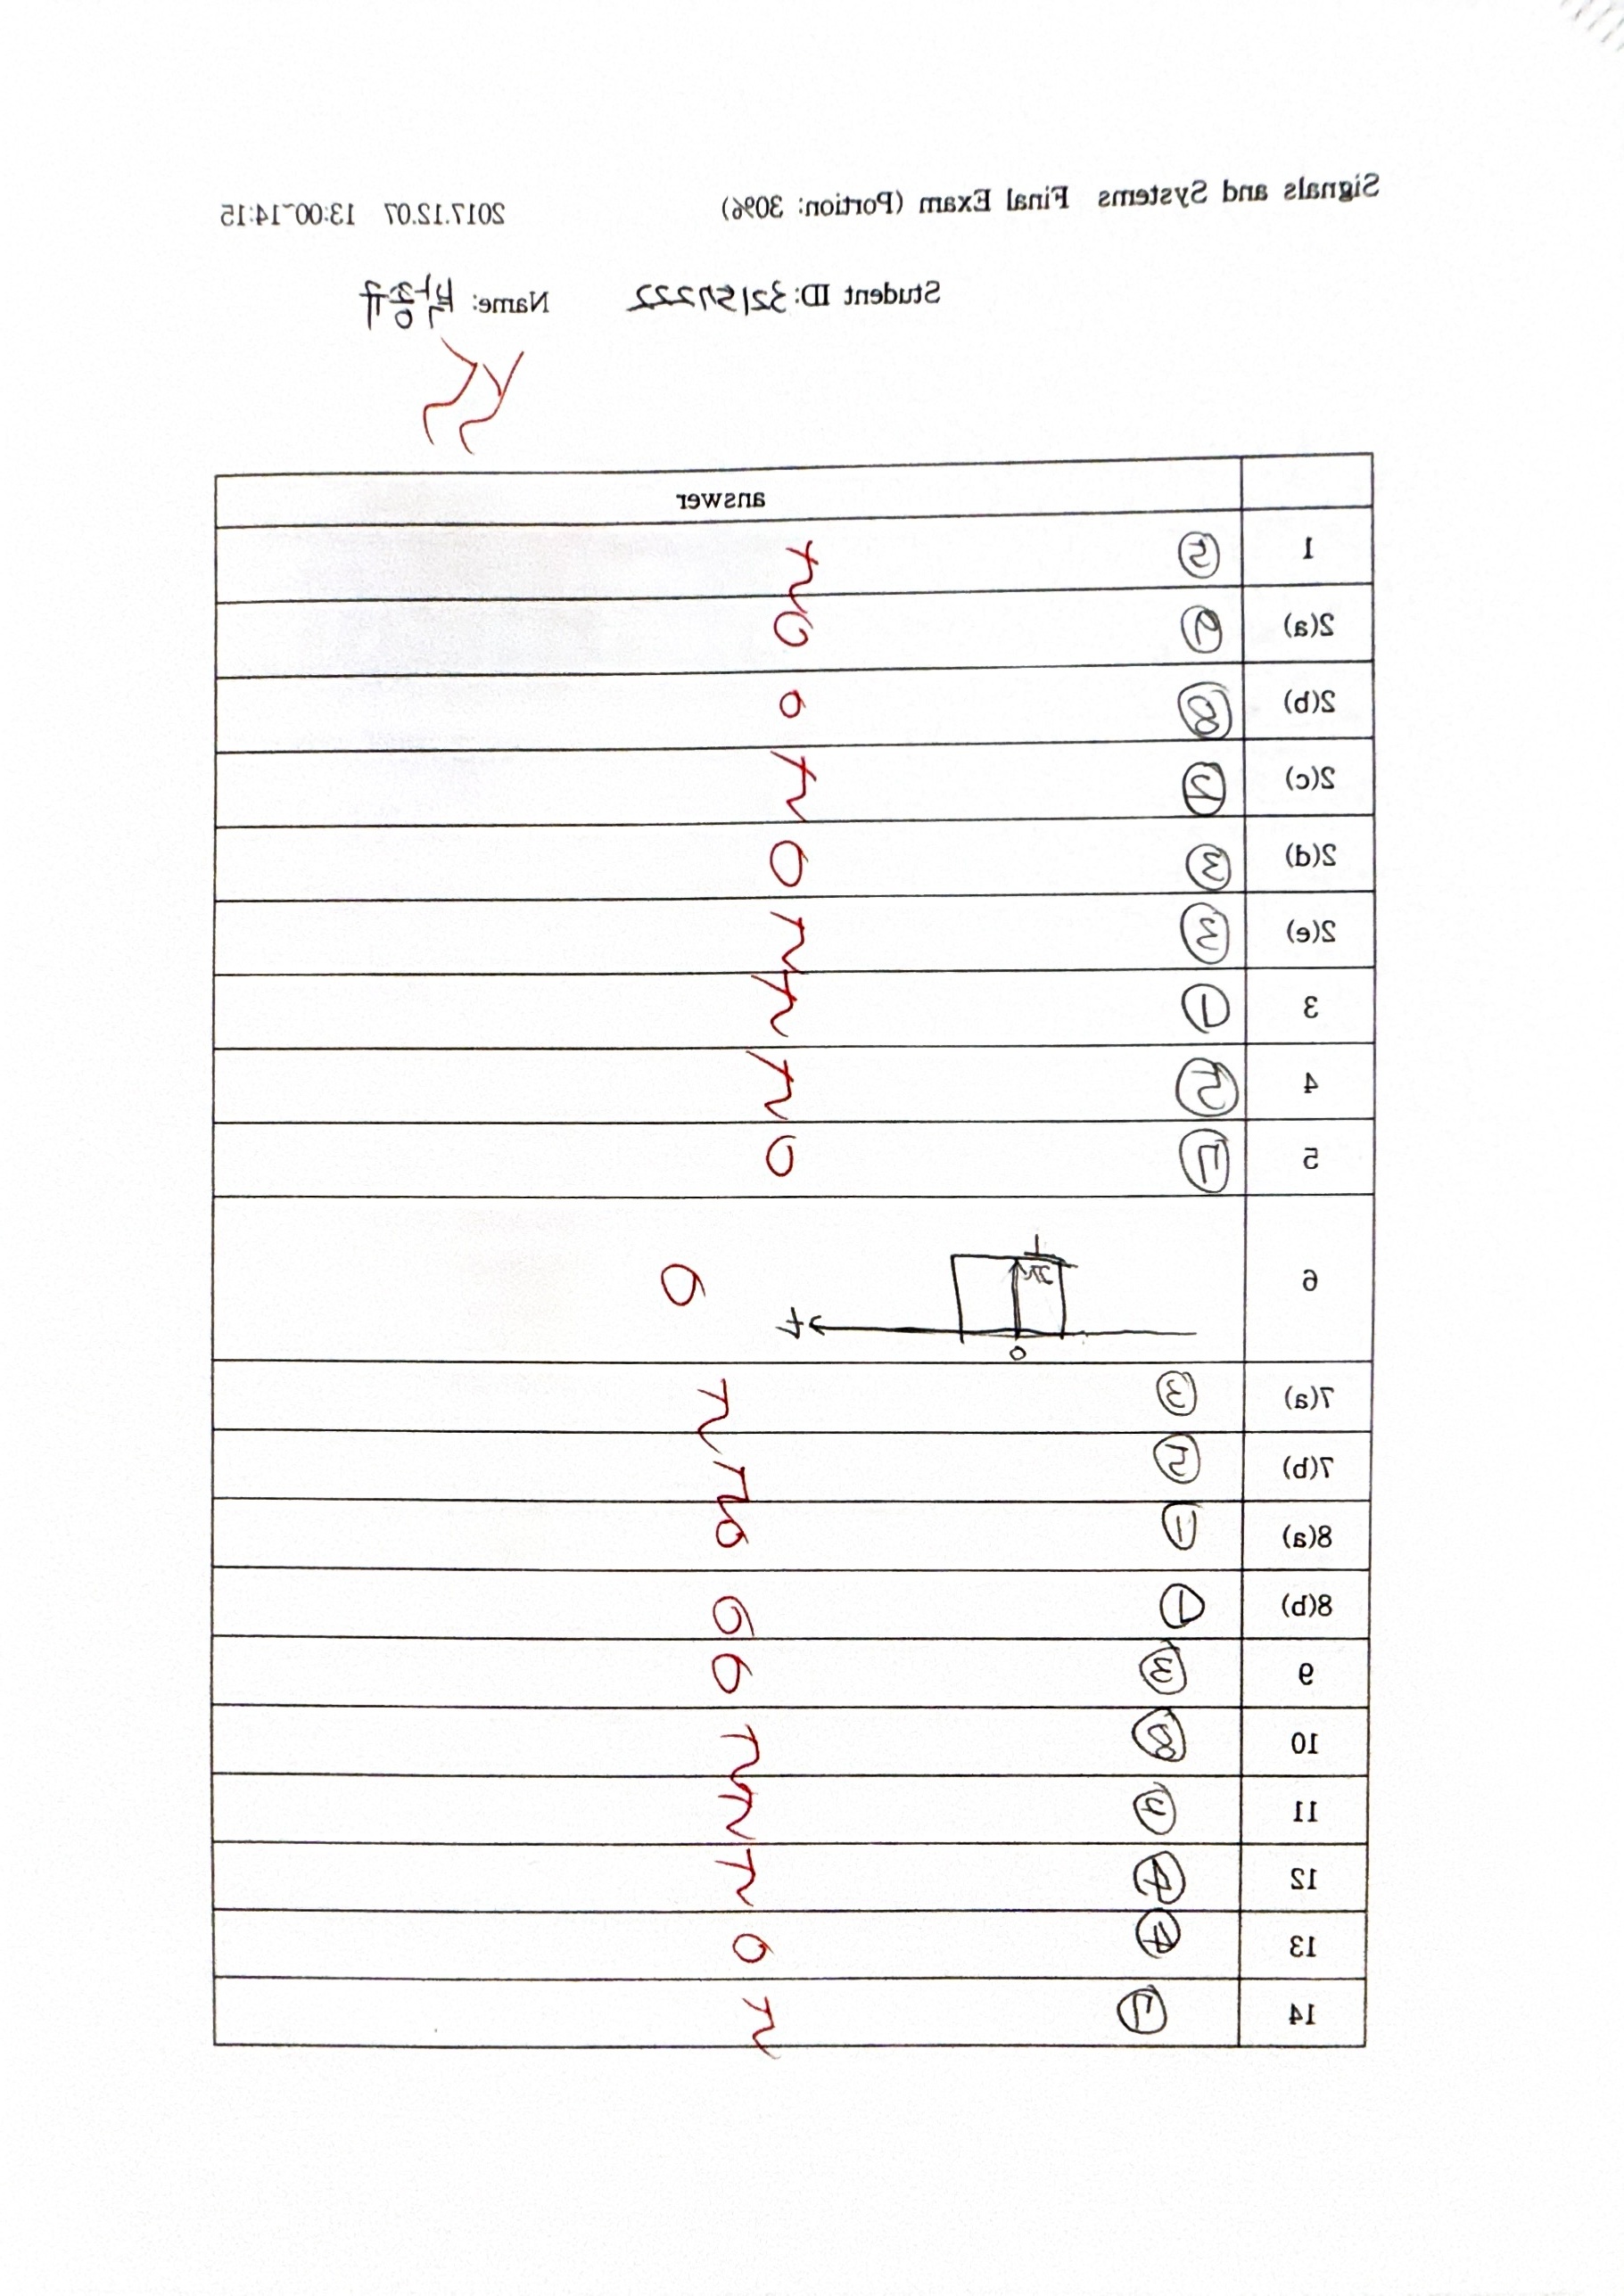 Signals and Systems Final Exam (Portion: 30%) 2017.12.07 13:00~14:15
Student ID: 32157222 Name: 박종규
answer
1 ⑤
2(a) ②
2(b) ⑧
2(c)
2(d) ③
2(e) ③
3 ①
4 ⑤
5 ⑦
6
1
2π
0
t
7(a) ③
7(b) ⑤
8(a) ①
8(b) ①
9 ③
10 ⑧
11 ④
12 ④
13 ④
14 ⑦